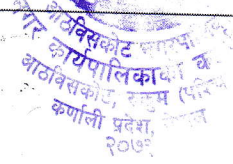 आठबिसकोट नगरपा
नगर कार्यपालिकाको क
आठबिसकोट, रुकुम (पश्चि
कर्णाली प्रदेश,
२०७३